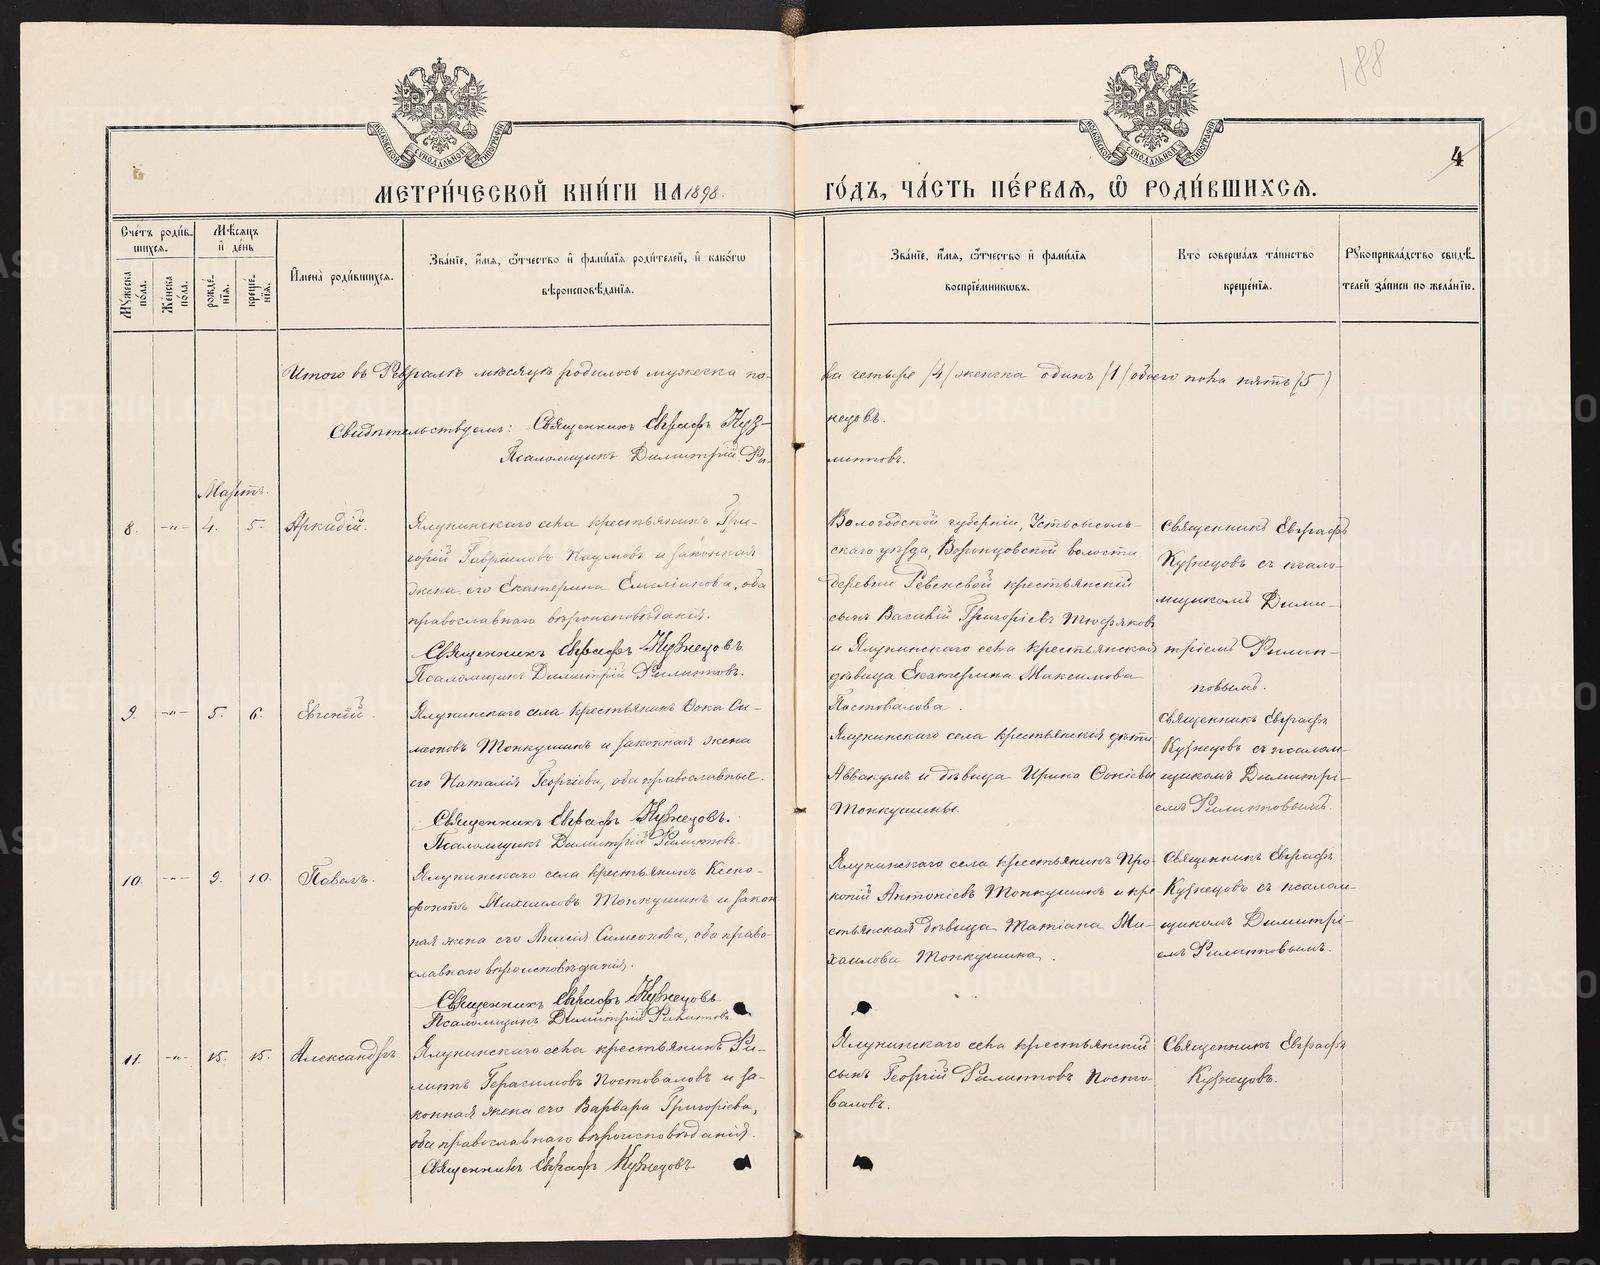 188
4
МОСКОВСКОЙ СѴНОДАЛЬНОЙ ТИПОГРАФІИ
МОСКОВСКОЙ СѴНОДАЛЬНОЙ ТИПОГРАФІИ
МЕТРИ́ЧЕСКОЙ КНИ́ГИ НА 1898.
ГО́ДЪ, ЧА́СТЬ ПЕ́РВАѦ, Ѽ РОДИ́ВШИХСѦ.
Сче́тъ роди́в-
шихся.
Мѣ́сяцъ
и҆ де́нь
Мꙋжеска по́ла.
Же́нска по́ла.
рожде́нїя.
креще́нїя.
И҆мена̀ роди́вшихся.
Зва́нїе, и҆́мя, ѻ҆́тчество и҆ фами́лїя роди́телей, и҆ како́гѡ
вѣроисповѣ́данїя.
Зва́нїе, и҆́мя, ѻ҆́тчество и҆ фами́лїя
воспрїе́мникѡвъ.
Кто̀ соверша́лъ та́инство
креще́нїя.
Рꙋкоприкла́дство свидѣ́-
телей за́писи по жела́нїю.
Итого въ Февралѣ мѣсяцѣ родилось мужеска по-
ла четыре /4/ женска одинъ /1/ обоего пола пять (5)
Свидѣтельствуемъ: Священникъ Евграфъ Куз-
нецовъ.
Псаломщикъ Димитрій Фи-
липповъ.
Мартъ.
8. -"- 4. 5. Аркадій.
Ялунинскаго села крестьянинъ Гри-
горій Гавріиловъ Наумовъ и законная
жена его Екатерина Емиліанова, оба
православнаго вѣроисповѣданія.
Священникъ Евграфъ Кузнецовъ.
Псаломщикъ Димитрій Филипповъ.
Вологодской губерніи, Устьсысоль-
скаго уѣзда, Воронцовской волости
деревни крестьянскій
сынъ Василій Григоріевъ Тюфяковъ
и Ялунинскаго села крестьянская
дѣвица Екатерина Максимова
Постовалова.
Священникъ Евграфъ
Кузнецовъ съ псало-
мщикомъ Дими-
тріемъ Филип-
повымъ.
9. -"- 5. 6. Евгеній.
Ялунинскаго села крестьянинъ Фока Си-
меоновъ Топкушинъ и законная жена
его Наталія Георгіева, оба православные.
Священникъ Евграфъ Кузнецовъ.
Псаломщикъ Димитрій Филипповъ.
Ялунинскаго села крестьянскія дѣти
Аввакумъ и дѣвица Ирина Фокіевы
Топкушины.
Священникъ Евграфъ
Кузнецовъ съ псалом-
щикомъ Димитрі-
емъ Филипповымъ.
10. -"- 9. 10. Павелъ.
Ялунинскаго села крестьянинъ Ксено-
фонтъ Михаиловъ Топкушинъ и закон
ная жена его Анисія Симеонова, оба право-
славнаго вѣроисповѣданія.
Священникъ Евграфъ Кузнецовъ
Псаломщикъ Димитрій Филипповъ
Ялунинскаго села крестьянинъ Про-
копій Антоніевъ Топкушинъ и кре-
стьянская дѣвица Татіана Ми-
хаилова Топкушина.
Священникъ Евграфъ
Кузнецовъ съ псалом-
щикомъ Димитрі-
емъ Филипповымъ.
11. -"- 15. 15. Александръ
Ялунинскаго села крестьянинъ Фи-
липпъ Герасимовъ Постоваловъ и за-
конная жена его Варвара Григоріева,
оба православнаго вѣроисповѣданія.
Священникъ Евграфъ Кузнецовъ.
Ялунинскаго села крестьянскій
сынъ Георгій Филипповъ Посто-
валовъ.
Священникъ Евграфъ
Кузнецовъ.
METRIKI.GASO-URAL.RU